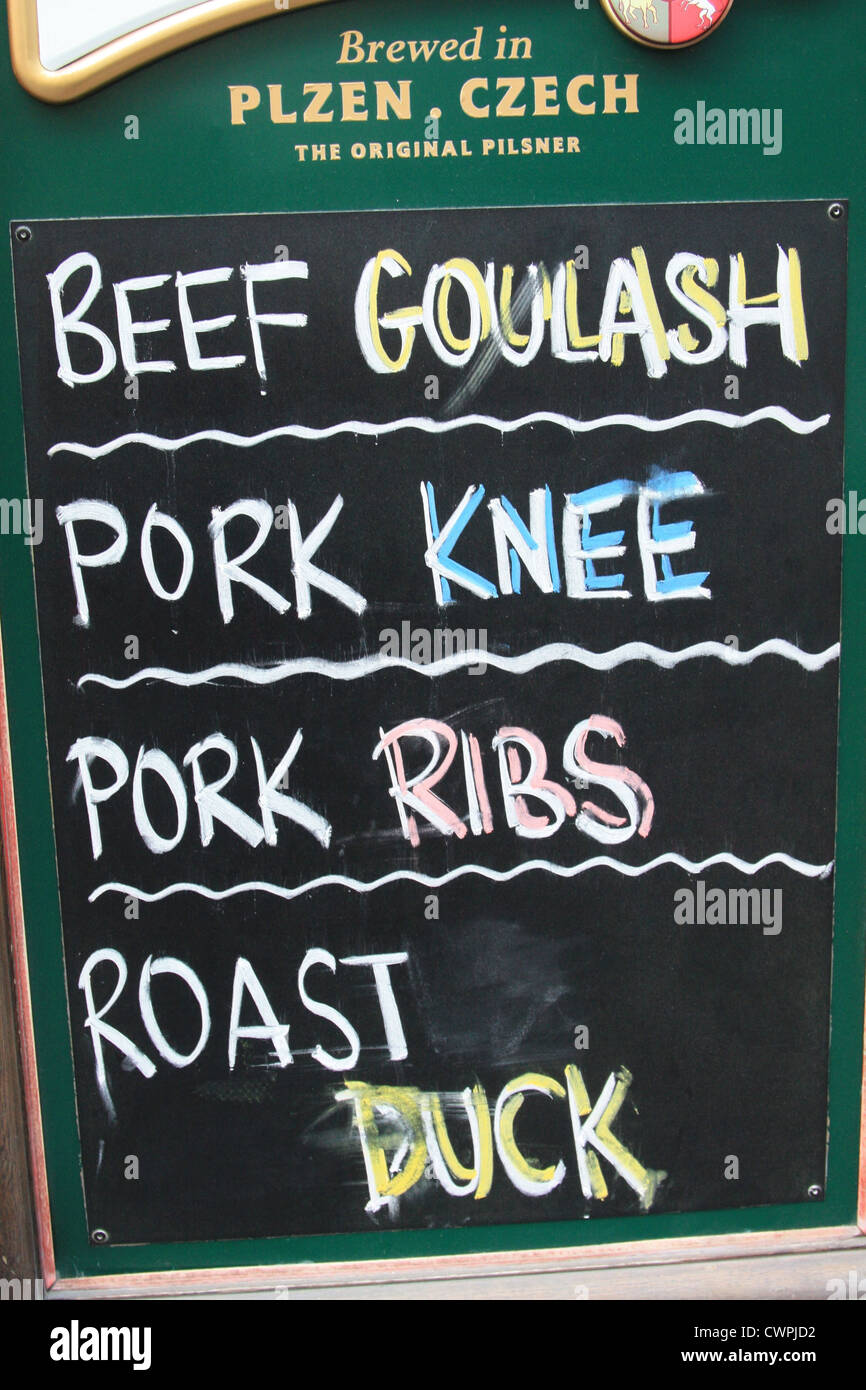 Brewed in
PLZEN . CZECH
THE ORIGINAL PILSNER
BEEF GOULASH
PORK KNEE
PORK RIBS
ROAST
DUCK
alamy
alamy
Image ID: CWPJD2
www.alamy.com